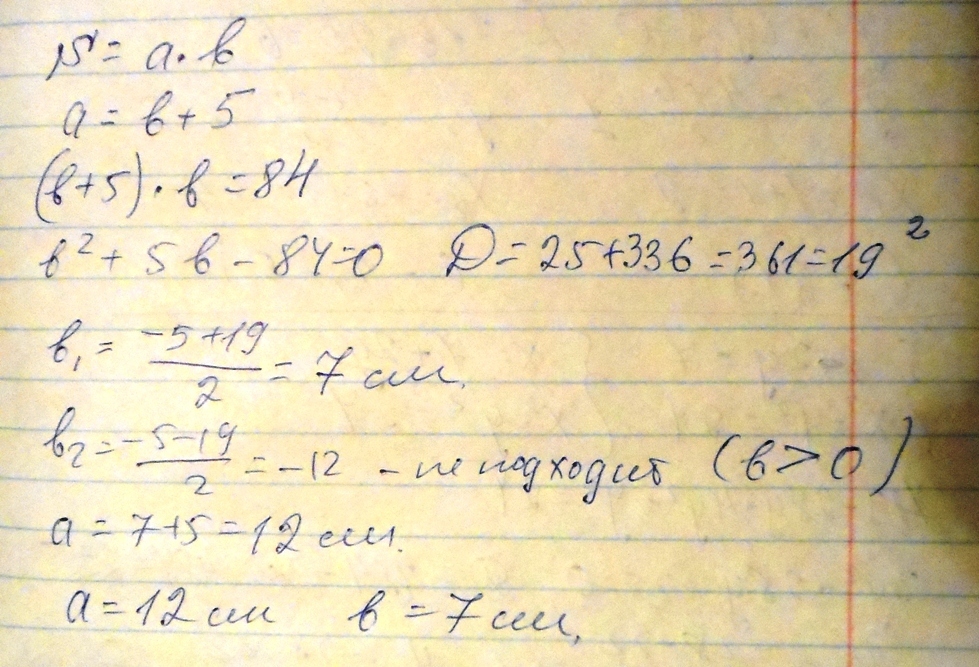 S = a · b
a = b + 5
(b+5) · b = 84
b² + 5b - 84 = 0 D = 25+336 = 361 = 19²
b₁ = (-5+19)/2 = 7 см.
b₂ = (-5-19)/2 = -12 - не подходит (b > 0)
a = 7+5 = 12 см.
a = 12 см b = 7 см.